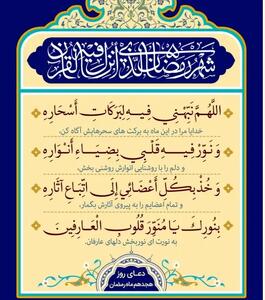 شهر رمضان الذی انزل فیه القرآن
اَللّهُمَّ نَبِّهْني فيهِ لِبَرَكاتِ أَسْحارِهِ
خدایا مرا در این ماه به برکت های سحرهایش آگاه کن،
وَ نَوِّرْ فيهِ قَلْبي بِضِياءِ أَنْوارِهِ
و دلم را با روشنایی انوارش روشنی بخش،
وَ خُذْ بِكُلِّ أَعْضائي إِلَى اتِّباعِ آثارِهِ
و تمام اعضایم را به پیروی آثارش بگمار،
بِنُورِكَ يا مُنَوِّرَ قُلُوبِ الْعارِفينَ
به نورت ای نوربخش دلهای عارفان.
دعای روز
هجدهم ماه رمضان